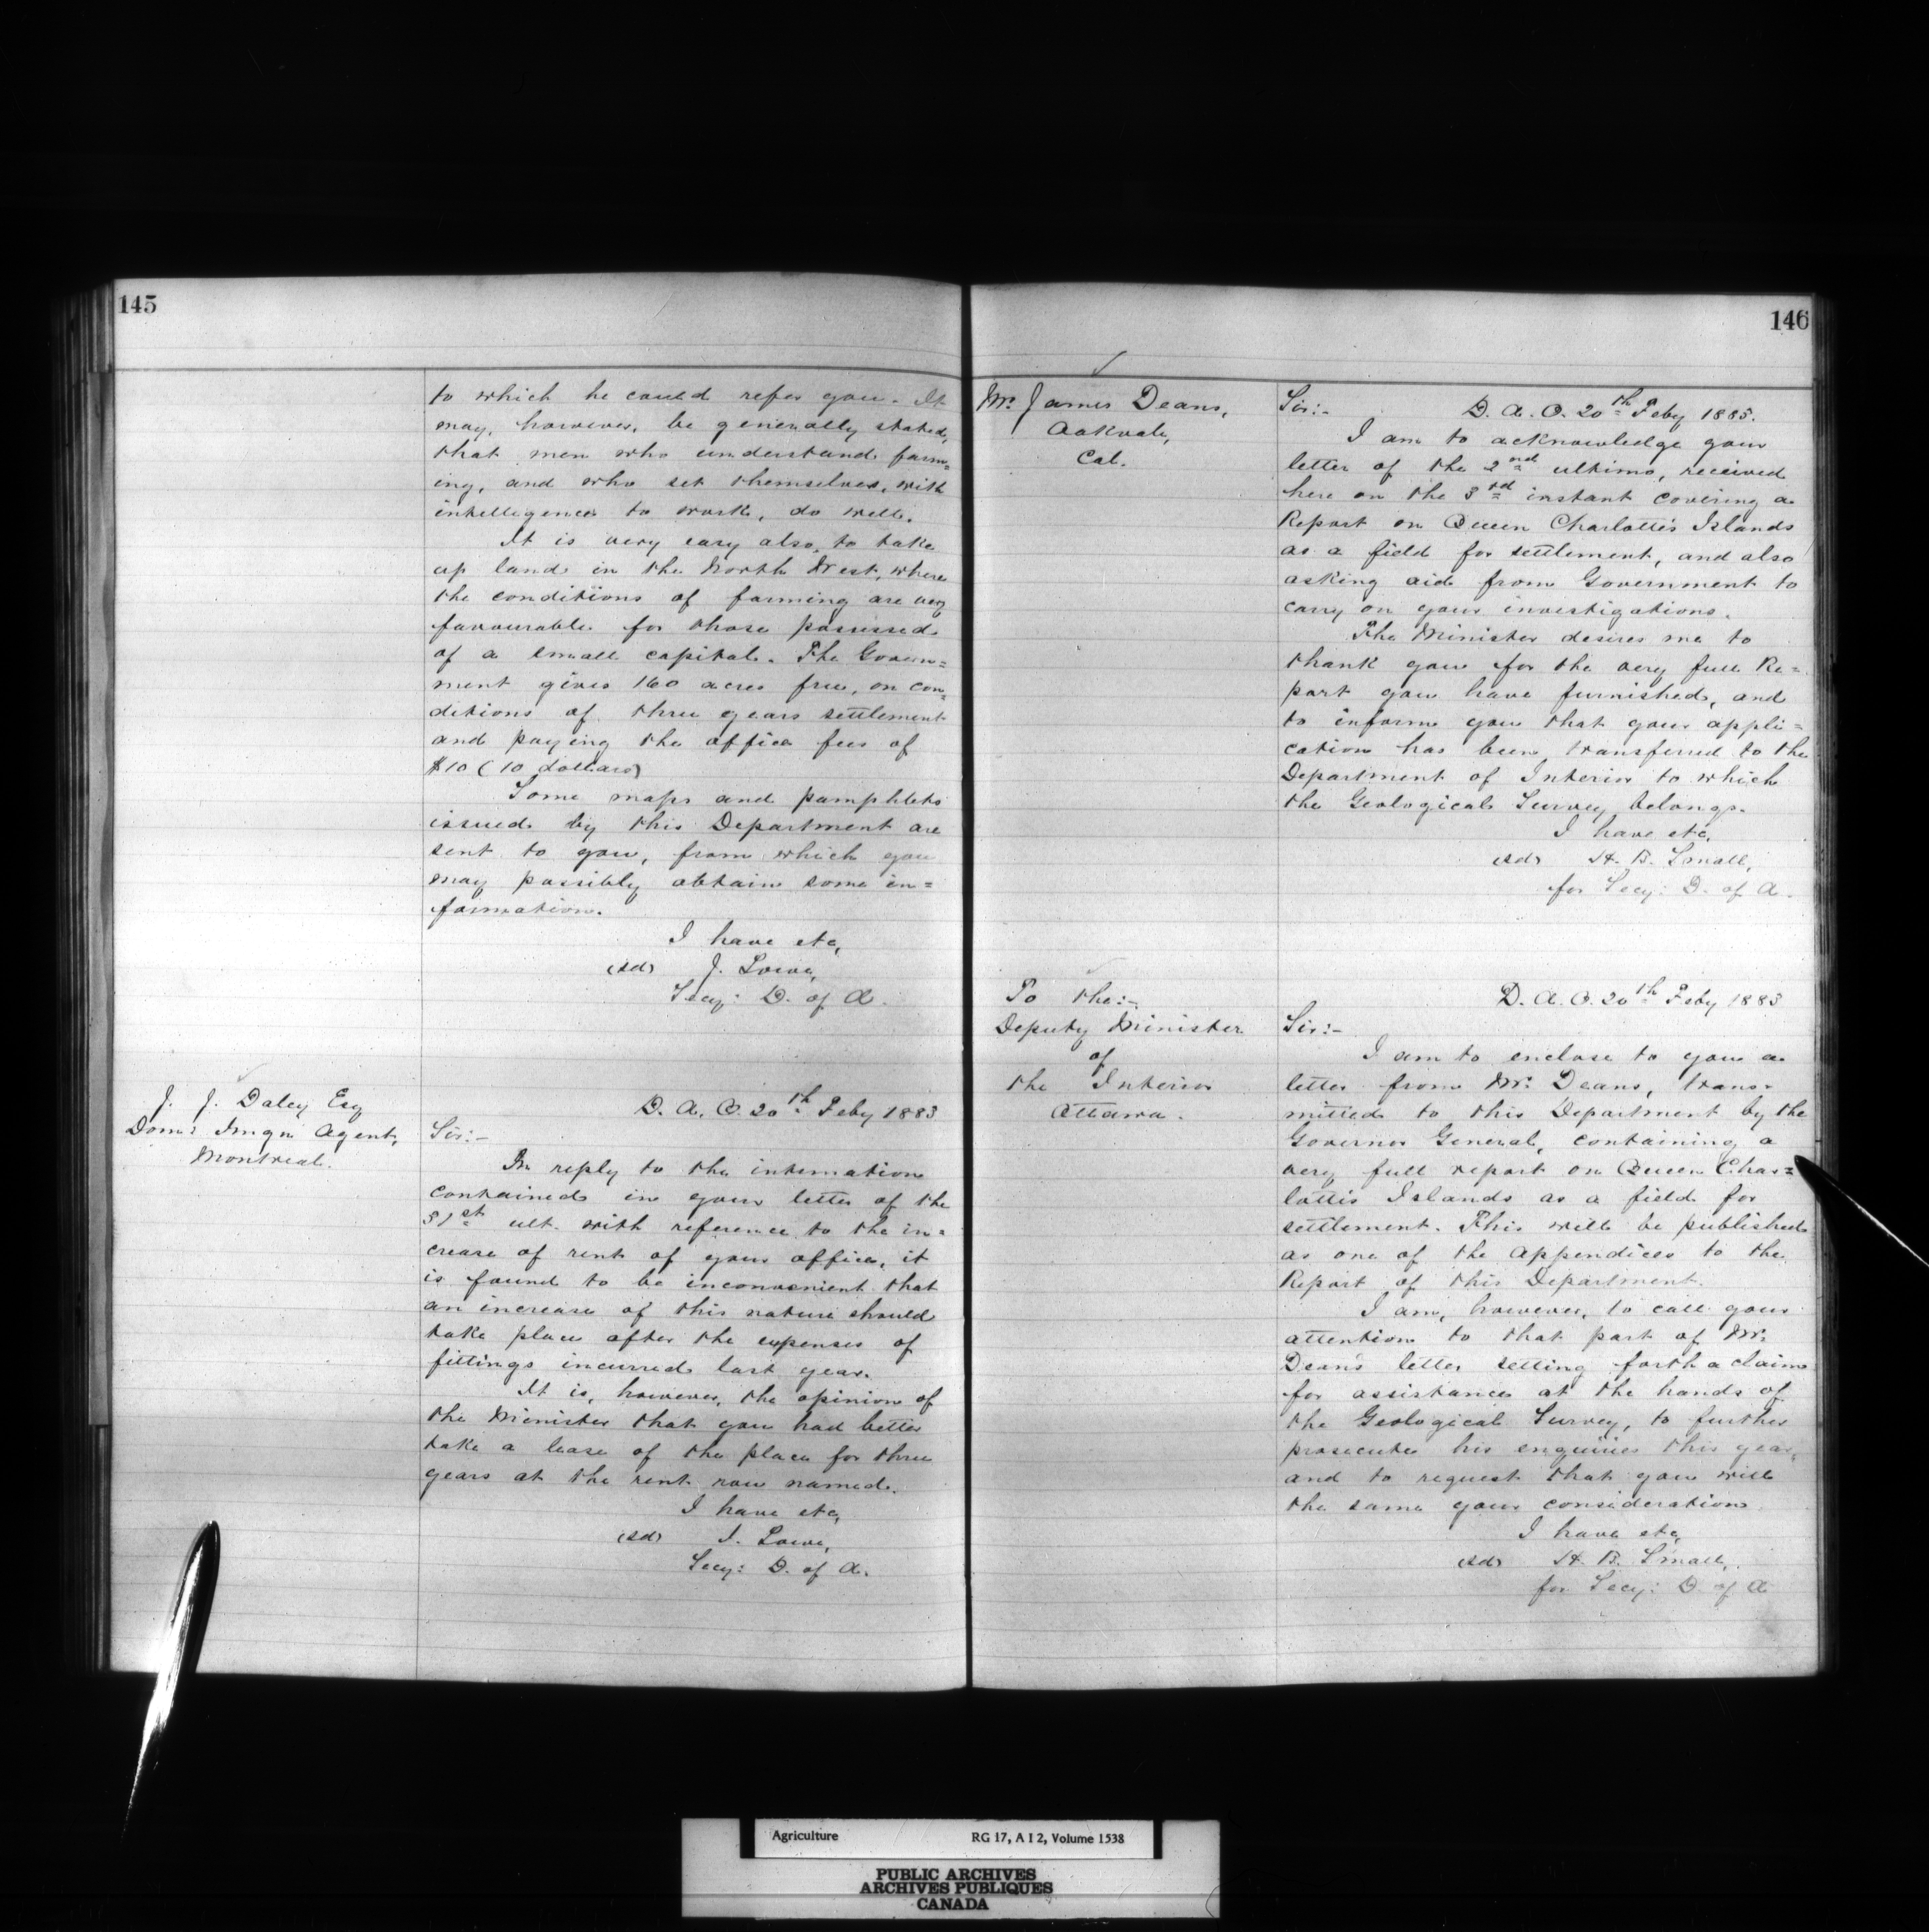 145
to which he could refer you. It
may, however, be generally stated,
that men who understand farm=
ing, and who set themselves, with
intelligence to work, do well.
It is very easy also, to take
up land in the North West, where
the conditions of farming are very
favourable for those possessed
of a small capital. The Govern=
ment gives 160 acres free, on con=
ditions of three years settlement
and paying the office fees of
$10 (10 dollars)
Some maps and pamphlets
issued by this Department are
sent to you, from which you
may possibly obtain some in=
formation.
I have etc,
(sd) J. Lowe,
Secy: D. of A.
J. J. Daley Esq
Domn Imgn Agent,
Montreal.
D. A. O. 20th Feby 1883
Sir:-
In reply to the intimation
contained in your letter of the
31st ult. with reference to the in=
crease of rent of your office, it
is found to be inconvenient that
an increase of this nature should
take place after the expenses of
fittings incurred last year.
It is, however, the opinion of
the Minister that you had better
take a lease of the place for three
years at the rent now named.
I have etc,
(sd) J. Lowe,
Secy: D. of A.
146
Mr. James Deans,
Oakvale,
Cal.
D. A. O. 20th Feby 1883.
Sir:-
I am to acknowledge your
letter of the 2nd ultimo, received
here on the 3rd instant covering a
Report on Queen Charlotte's Islands
as a field for settlement, and also
asking aid from Government to
carry on your investigations.
The Minister desires me to
thank you for the very full Re=
port you have furnished, and
to inform you that your appli=
cation has been transferred to the
Department of Interior to which
the Geological Survey belongs.
I have etc,
(sd) H. B. Small,
for Secy: D. of A.
To the:-
Deputy Minister
of
the Interior
Ottawa.
D. A. O. 20th Feby 1883
Sir:-
I am to enclose to you a
letter from Mr. Deans, trans=
mitted to this Department by the
Governor General, containing a
very full report on Queen Char=
lotte's Islands as a field for
settlement. This will be published
as one of the Appendices to the
Report of this Department.
I am, however, to call your
attention to that part of Mr.
Dean's letter setting forth a claim
for assistance at the hands of
the Geological Survey, to further
prosecute his enquiries this year,
and to request that you will
the same your consideration
I have etc,
(sd) H. B. Small,
for Secy: D of A
Agriculture RG 17, A I 2, Volume 1538
PUBLIC ARCHIVES
ARCHIVES PUBLIQUES
CANADA